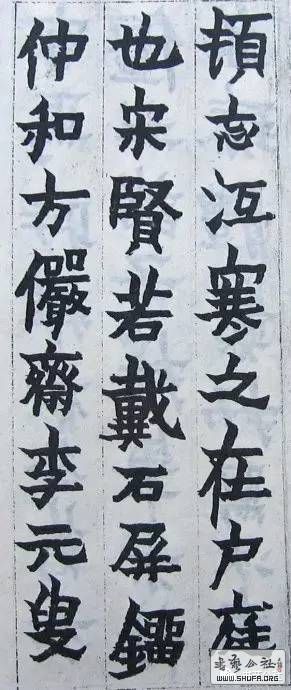 頓忘沍寒之在户庭
也宋賢若戴石屏鎦
仲和方儼齋李元叟
书艺公社
WWW.SHUFA.ORG